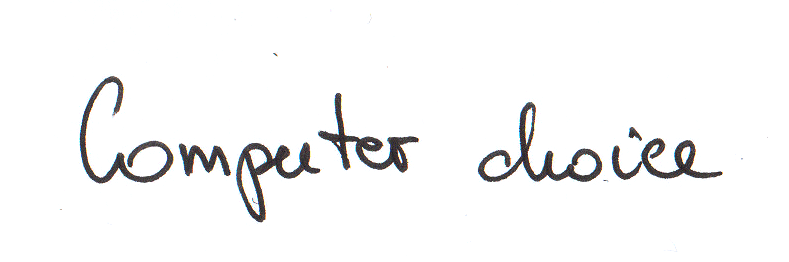 Computer choice